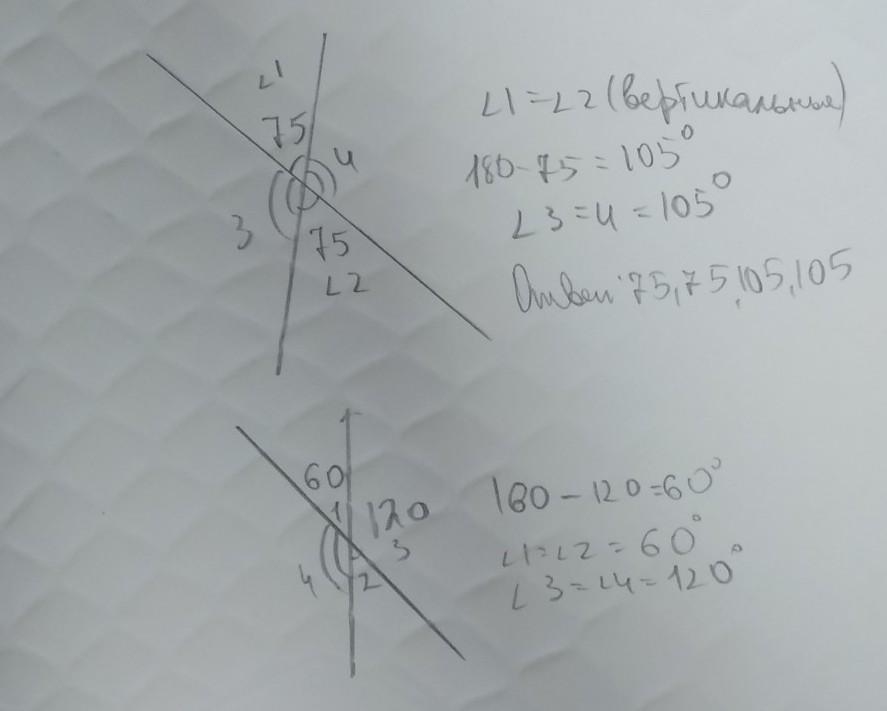 ∠1
75
4
3
75
∠2
∠1=∠2 (вертикальные)
180-75=105°
∠3=4=105°
Ответ: 75,75,105,105
60
1
120
3
4
2
180-120=60°
∠1=∠2=60°
∠3=∠4=120°